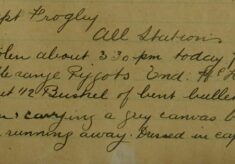 pt Frogley
All Stations
olen about 3.30 pm today f
le range Pigots End.
t ½ Bushel of bent bulle
carrying a grey canvas b
running away. Dressed in cap